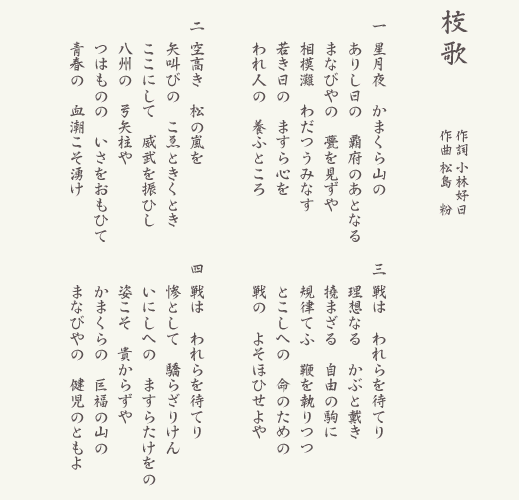 校歌
作詞 小林好日
作曲 松島 粉
一
星月夜 かまくら山の
ありし日の 覇府のあとなる
まなびやの 甍を見ずや
相模灘 わだつうみなす
若き日の ますら心を
われ人の 養ふところ
二
空高き 松の嵐を
矢叫びの こゑときくとき
ここにして 威武を振ひし
八州の 弓矢柱や
つはものの いさをおもひて
青春の 血潮こそ湧け
三
戦は われらを待てり
理想なる かぶと戴き
撓まざる 自由の駒に
規律てふ 鞭を執りつつ
とこしへの 命のための
戦の よそほひせよや
四
戦は われらを待てり
惨として 驕らざりけん
いにしへの ますらたけをの
姿こそ 貴からずや
かまくらの 匡福の山の
まなびやの 健児のともよ